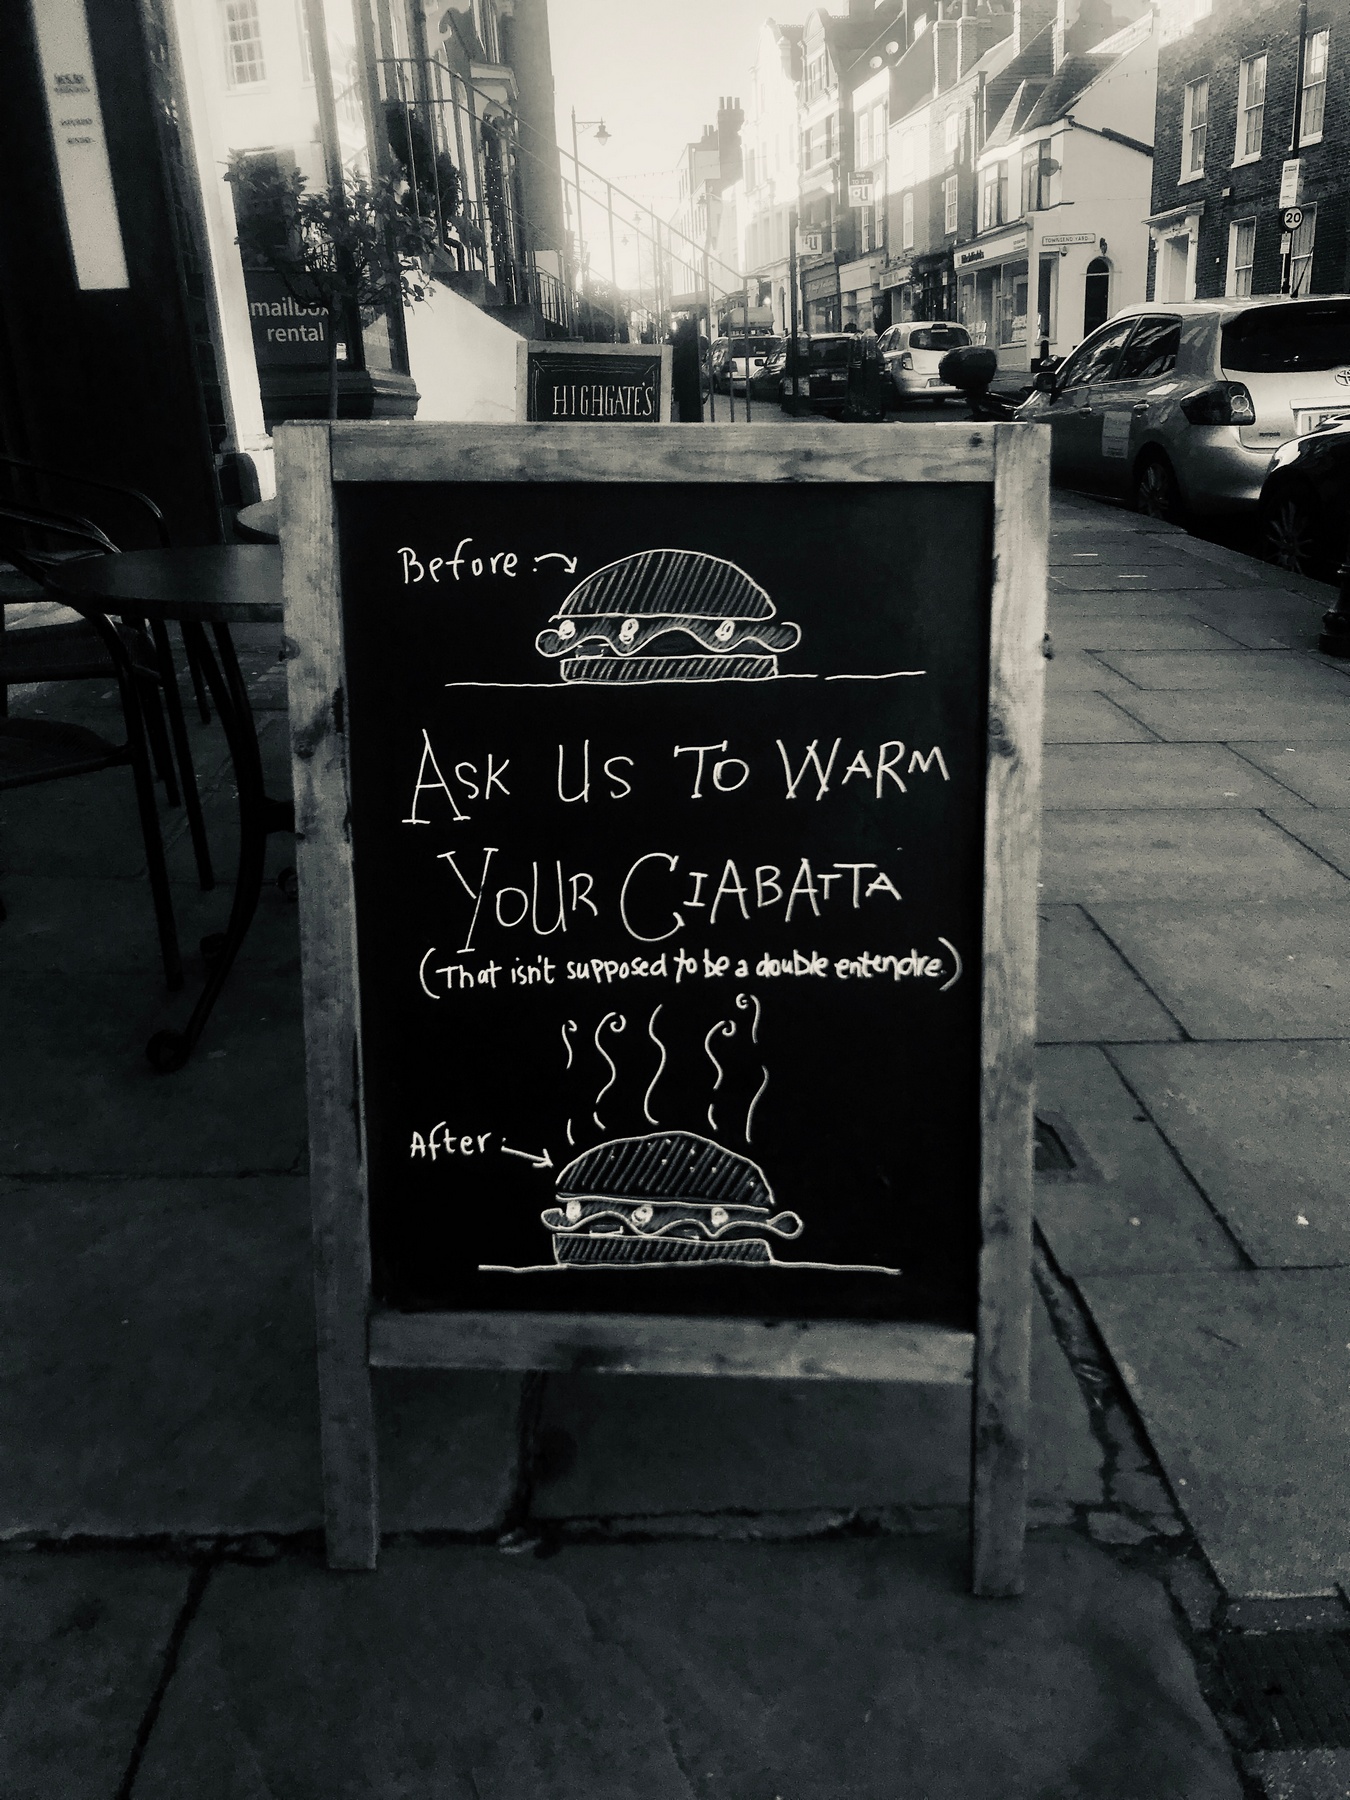 mailbox
rental
HIGHGATE'S
TOWNSEND YARD
20
Before :
ASK US TO WARM
YOUR CIABATTA
(That isn't supposed to be a double entendre.)
After :